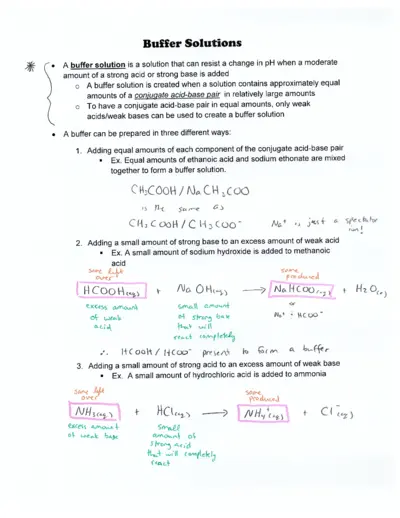 Buffer Solutions
* • A buffer solution is a solution that can resist a change in pH when a moderate
amount of a strong acid or strong base is added
o A buffer solution is created when a solution contains approximately equal
amounts of a conjugate acid-base pair in relatively large amounts
o To have a conjugate acid-base pair in equal amounts, only weak
acids/weak bases can be used to create a buffer solution
• A buffer can be prepared in three different ways:
1. Adding equal amounts of each component of the conjugate acid-base pair
▪ Ex. Equal amounts of ethanoic acid and sodium ethonate are mixed
together to form a buffer solution.
CH3COOH / NaCH3COO
is the same as
CH3COOH / CH3COO⁻ Na⁺ is just a spectator
ion!
2. Adding a small amount of strong base to an excess amount of weak acid
▪ Ex. A small amount of sodium hydroxide is added to methanoic
acid
some left
over
some
produced
HCOOH(aq) + NaOH(aq) → NaHCOO(aq) + H2O(l)
excess amount
of weak
acid
small amount
of strong base
that will
react completely
or
Na⁺ + HCOO⁻
∴ HCOOH / HCOO⁻ present to form a buffer
3. Adding a small amount of strong acid to an excess amount of weak base
▪ Ex. A small amount of hydrochloric acid is added to ammonia
some left
over
some
produced
NH3(aq) + HCl(aq) → NH4⁺(aq) + Cl⁻(aq)
excess amount
of weak base
small
amount of
strong acid
that will completely
react